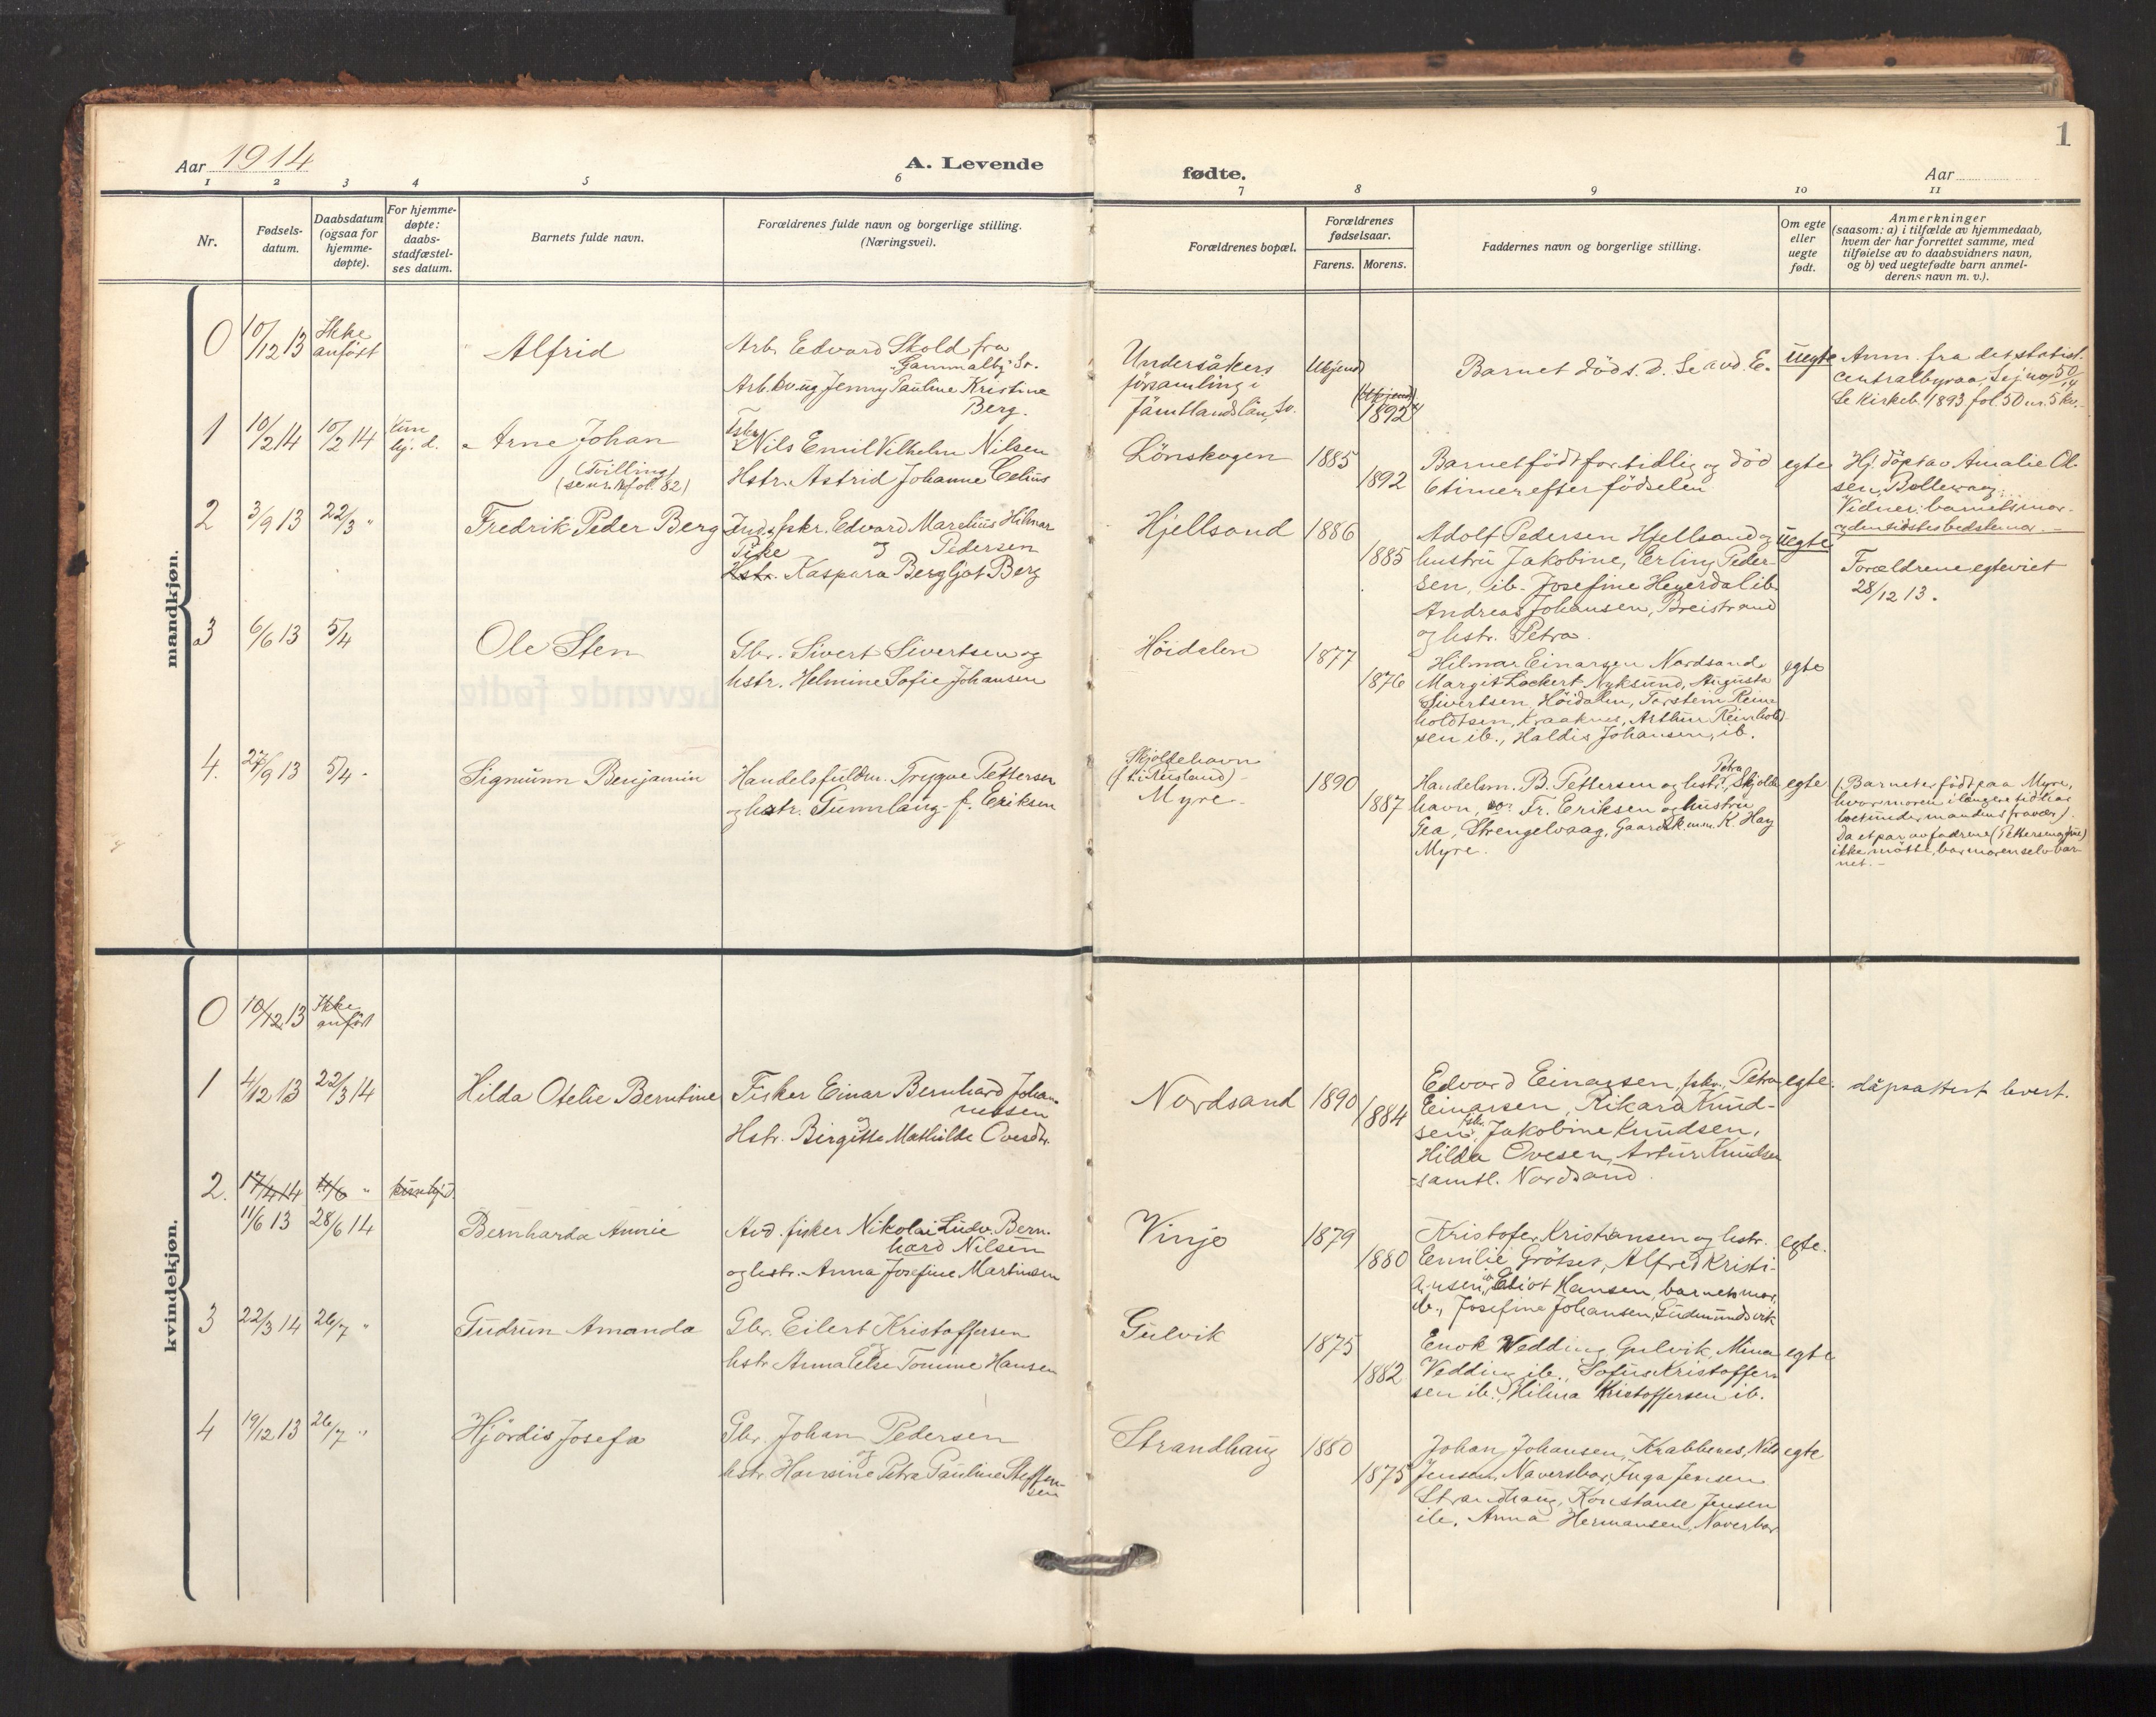 Aar 1914
A. Levende
fødte.
Aar
1
1 2 3 4 5 6 7 8 9 10 11
Nr.
Fødsels-
datum.
Daabsdatum
(ogsaa for
hjemme-
døpte).
For hjemme-
døpte:
daabs-
stadfæstel-
ses datum.
Barnets fulde navn.
Forældrenes fulde navn og borgerlige stilling.
(Næringsvei).
Forældrenes bopæl.
Forældrenes
fødselsaar.
Farens. Morens.
Faddernes navn og borgerlige stilling.
Om egte
eller
uegte
født.
Anmerkninger
(saasom: a) i tilfælde av hjemmedaab,
hvem der har forrettet samme, med
tilføielse av to daabsvidners navn,
og b) ved uegtefødte barn anmel-
derens navn m. v.).
mandkjøn.
0
10/12 13
Ikke
anført
Alfrid
Arb. Edvard Sköld fra
Gammalby Sv.
Arb. Jenny Pauline Kristine
Berg.
Undersåkers
församling i
Jämtlandslän, Sv.
Ukjend
(Ukjend)
1892
Barnet död s. d. Se avd. E.
uegte
Anm. fra det statist.
centralbyraa
Se kirkeb. 1893 fol. 50 nr. 5
1
10/2 14
10/2 14
kun
hj. d.
Arne Johan
(Tvilling)
Fsker
Nils Emil Vilhelm Nilsen
Hstr. Astrid Johanne Celius
Lönskogen
1885
1892
Barnet født for tidlig og död
6 timer efter födselen
egte
Hj. döpt av Amalie Ol-
sen,
Vidner: barnets mor
og den sidstes bedstemor.
2
3/9 13
22/3 "
Fredrik Peder Berg
Inds. fskr. Edvard Marelius Hilmar
Pike og Pedersen
Hstr. Kaspara Bergljot Berg
Hjellsand
1886
1885
Adolf Pedersen Hjellsand og
hustru Jakobine, Erling Peder-
sen, ib. Josefine Heyerdal ib.
Andreas Johansen, Breistrand
og hstr. Petra.
uegte
Forældrene egteviet
28/12 13.
3
6/6 13
5/4
Ole Sten
Gbr. Sivert Sivertsen og
hstr. Helmine Sofie Johansen
Höidalen
1877
1876
Hilmar Einarsen Nordsand
Margit Lockert Nyksund, Augusta
Sivertsen, Höidalen, Torstein Rein-
holdtsen, Kraaknes, Arthur Reinholdt-
sen ib., Haldis Johansen, ib.
egte
4.
27/9 13
5/4
Sigmunn Benjamin
Handelsfuldm. Trygve Pettersen
og hstr. Gunnlaug f. Eriksen
Skjoldehavn
(f. t. i Rusland)
Myre
1890
1887
Petra
Handelsm. B. Pettersen og hstr., Skjolde-
havn, Fr. Eriksen og hustru
Gea, Strengelvaag, Gaardbr. K. Hay
Myre.
egte
(Barnet er født paa Myre,
hvor moren i længere tid har
boet under mandens fravær).
Da et par av fadrene (Pettersen og frue)
ikke mötte, bar moren selv bar-
net.
kvindekjøn.
0
10/12 13
Ikke
anført
1
4/12 13
22/3 14
Hilda Otelie Berntine
Fisker Einar Bernhard Johan-
nesen
og
Hstr. Birgitte Mathilde Ovesdtr.
Nordsand
1890
1884
Edvard Einarsen, fskr., Petra
Einarsen, Rikard Knud-
sen, fskr. Jakobine Knudsen,
Hilda Ovesen, Artur Knudsen
samtl. Nordsand.
egte.
dåpsattest levert.
2.
17/4 14
11/6 "
11/6 13
28/6 14
Bernharda Annie
Avd. fisker Nikolai Ludv. Bern-
hard Nilsen
og hstr. Anna Josefine Martinsen
Vinje
1879
1880
Kristofer Kristiansen og hstr.
Emilie Grötnes, Alfred Kristi-
ansen ib., Eliot Hansen, barnets mor,
ib., Josefine Johansen, Gudmundsvik
egte.
3
22/3 14
26/7 "
Gudrun Amanda
Gbr. Eilert Kristoffersen
og
hstr. Anna Else Tomine Hansen
Gulvik
1875
1882
Enok Wedding, Gulvik, Mina
Vedding ib., Sofus Kristoffer-
sen ib., Hilma Kristoffersen ib.
egte
4
19/12 13
26/7 "
Hjördis Josefa
Gbr. Johan Pedersen
og
hstr. Hansine Petra Pauline Steffen-
sen
Strandhaug
1880
1875
Johan Johansen, Krabbenes, Nils
Jensen, Naversbor, Inga Jensen
Strandhaug, Konstanse Jensen
ib., Anna Hermansen, Naverbor
egte